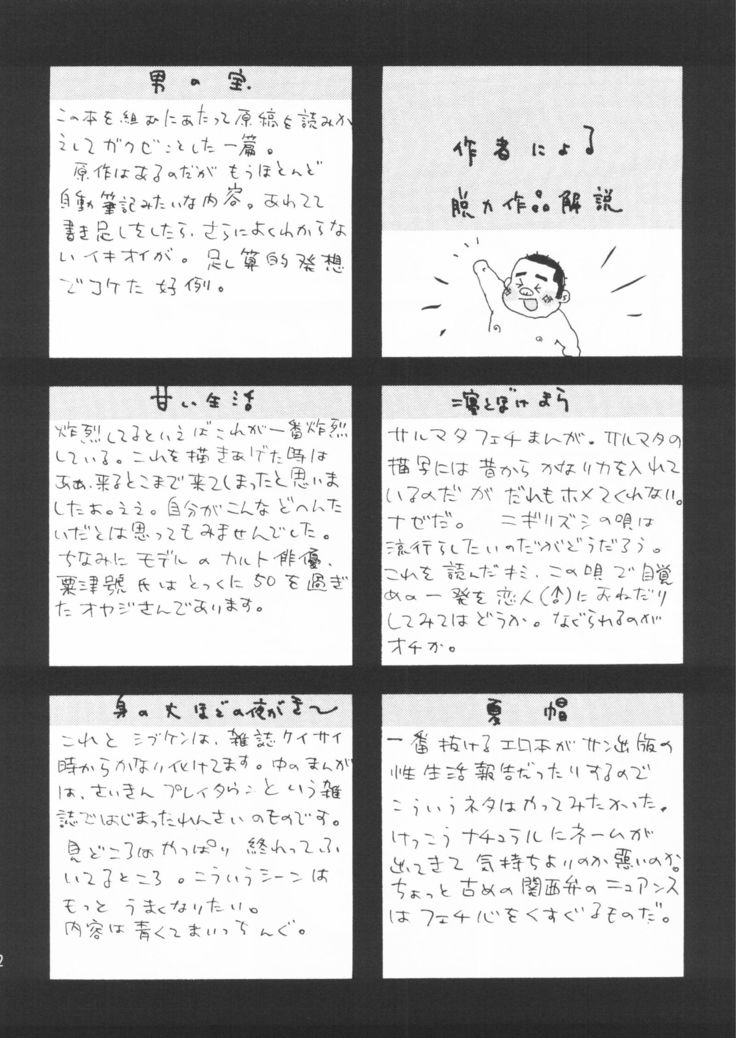 作者による
脱力作品解説
男の宝
この本を組むにあたって原稿を読みか
えしてガクゼンとした一篇。
原作はあるのだが もうほとんど
自動筆記みたいな内容。あわてて
書き足しをしたら、さらによくわからな
いイキオイが。足し算的発想
でコケた好例。
とぼけまら
サルマタフェチまんが。サルマタの
描写には昔からかなり力を入れて
いるのだが だれもホメてくれない。
ナゼだ。 ニギリズシの唄は
流行らしたいのだがどうだろう。
これを読んだキミ、この唄で目覚
めの一発を恋人(♂)におねだり
してみてはどうか。なぐられるのが
オチか。
甘い生活
炸烈してるといえばこれが一番炸烈
している。これを描きあげた時は
ああ、来るとこまで来てしまったと思いま
したよ。ええ。自分がこんなどへんた
いだとは思ってもみませんでした。
ちなみにモデルのカルト俳優、
粟津號氏はとっくに50を過ぎ
たオヤジさんであります。
夏 帽
一番抜けるエロ本がサン出版の
性生活報告だったりするので
こういうネタはやってみたかった。
けっこうナチュラルにネームが
出てきて 気持ちよいのか悪いのか。
ちょっと古めの関西弁のニュアンス
はフェチ心をくすぐるものだ。
身の丈ほどの夜がき〜
これと シブケンは、雑誌ケイサイ
時からかなり化けてます。中のまんが
は、さいきん プレイタウンという雑
誌ではじまったれんさいのものです。
見どころはやっぱり 終わってふ
いてるところ。こういうシーンは
もっと うまくなりたい。
内容は青くてまいっちんぐ。
2